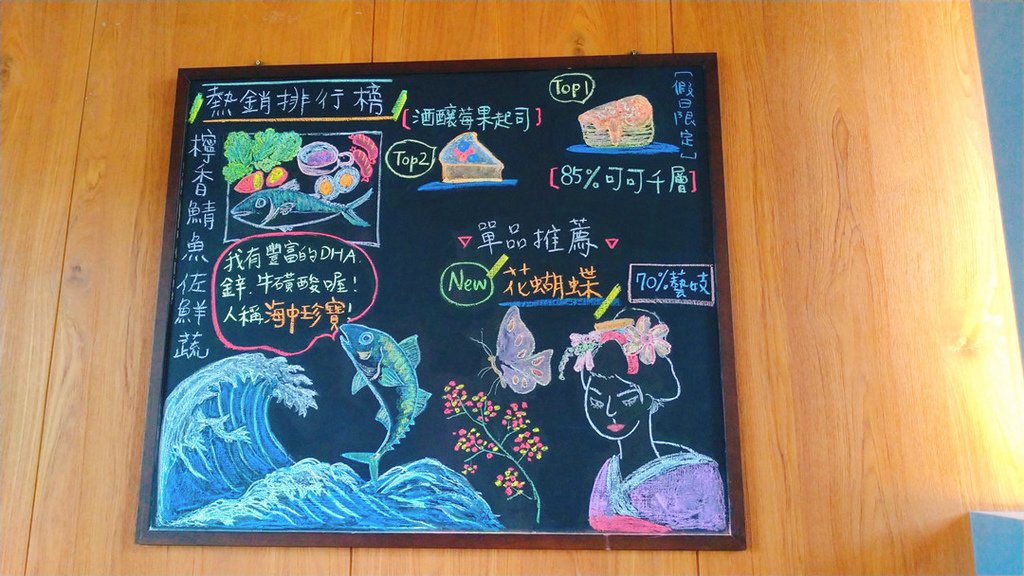 熱銷排行榜
檸香鯖魚佐鮮蔬
我有豐富的DHA
鋅.牛磺酸喔!
人稱海中珍寶!
[酒釀莓果起司]
Top2
Top1
[假日限定]
[85%可可千層]
單品推薦
New
花蝴蝶
70%藝妓